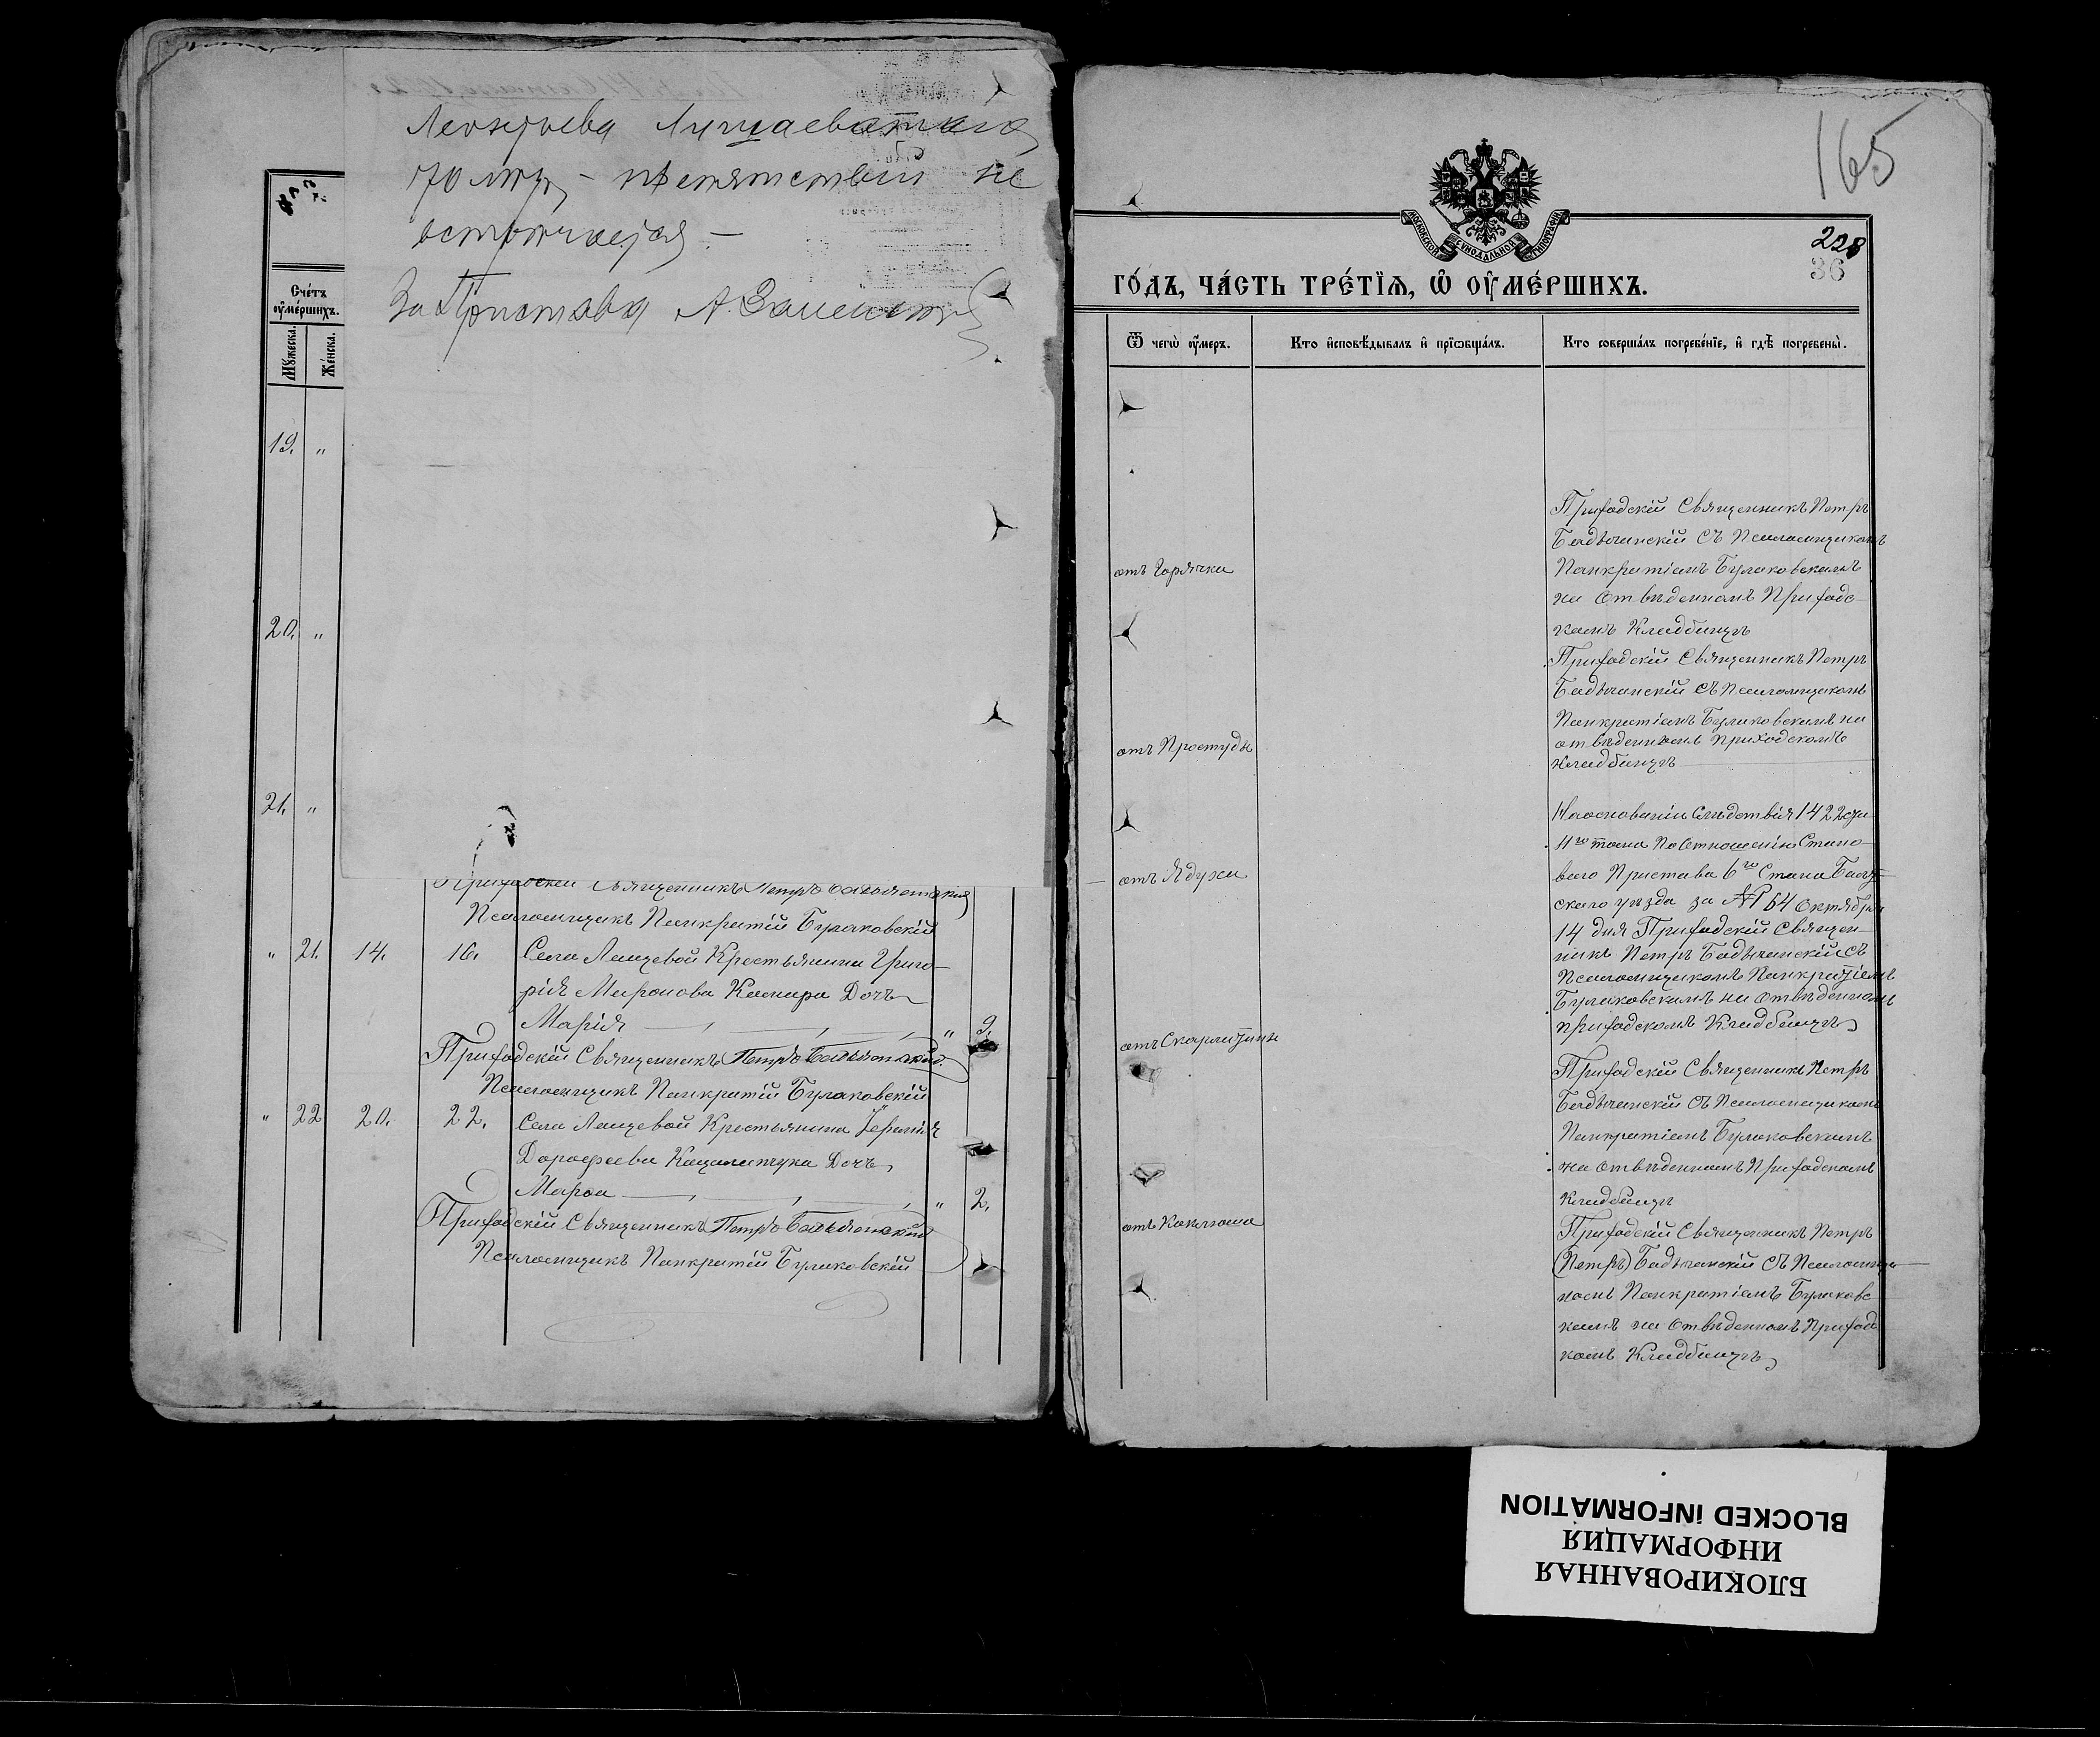 Леонтьева Лущаеватаго
70 лѣтъ, – препятствій не
встрѣчается –
За Пристава А.
Счéтъ
ᲂу҆мéршихъ.
Мꙋжеска.
Жéнска.
19. „
20. „
21. „
Приходскій Священникъ Петръ
Псаломщикъ Панкратій Булаковскій
„ 21. 14. 16. Села Лащевой Крестьянина Григо-
рія Миронова Кашира Дочь
Марія „ 9.
Приходскій Священникъ Петръ
Псаломщикъ Панкратій Булаковскій
„ 22 20. 22. Села Лащевой Крестьянина Іереміи
Дорофеева Дочь
Марѳа „ 2.
Приходскій Священникъ Петръ
Псаломщикъ Панкратій Булаковскій
165
МОСКОВСКОЙ СѴНОДАЛЬНОЙ ТИПОГРАФІИ
228
36
ГÓДЪ, ЧÁСТЬ ТРÉТЇѦ, Ѽ ОУ҆МÉРШИХЪ.
Ѿ чегѡ̀ ᲂу҆мéръ.
Кто̀ и҆сповѣ́дывалъ и҆ прїѡбщáлъ.
Кто̀ совершáлъ погребéнїе, и҆ гдѣ̀ погребены̀.
отъ Горячки
Приходскій Священникъ Петръ
Бадьчинскій съ Псаломщикомъ
Панкратіемъ Булаковскимъ
на отвѣденномъ Приходс-
комъ Кладбищѣ
отъ Простуды
Приходскій Священникъ Петръ
Бадьчинскій съ Псаломщикомъ
Панкратіемъ Булаковскимъ на
отвѣденномъ приходскомъ
кладбищѣ
отъ Ядухи
На основаніи Слѣдствія 1422 ст.
11го тома По Отношенію Стано-
ваго Пристава 6го Стана
скаго уѣзда за № 164 Октября
14 дня Приходскій Священ-
никъ Петръ Бадьчинскій съ
Псаломщикомъ Панкратіемъ
Булаковскимъ на отвѣденномъ
приходскомъ Кладбищѣ
отъ Скарлатины
Приходскій Священникъ Петръ
Бадьчинскій съ Псаломщикомъ
Панкратіемъ Булаковскимъ
на отвѣденномъ Приходскомъ
Кладбищѣ
отъ Коклюша
Приходскій Священникъ Петръ
(Петръ) Бадьчинскій съ Псаломщи-
комъ Панкратіемъ Булаковс-
кимъ на отвѣденномъ Приход-
комъ Кладбищѣ
БЛОКИРОВАННАЯ
ИНФОРМАЦИЯ
BLOCKED iNFORMATION